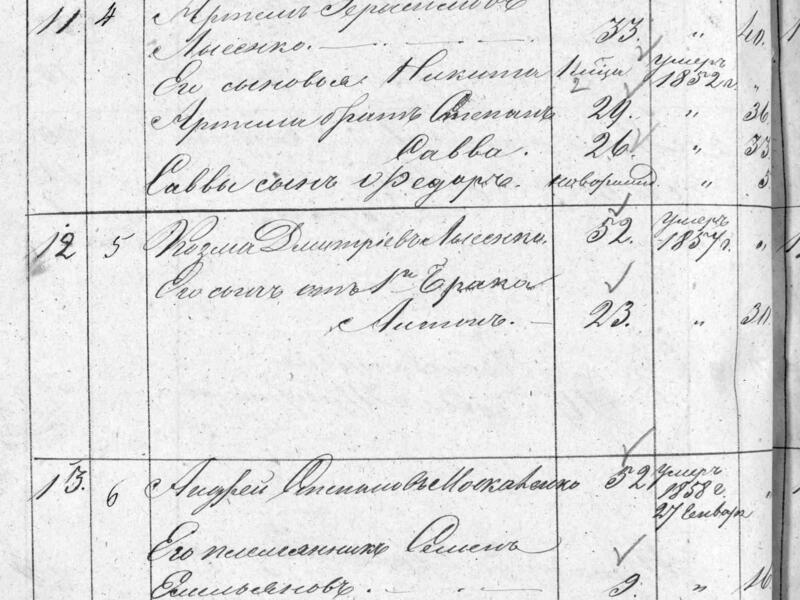 11 4 Артемъ Герасимовъ
Лысенко. 33. " 40.
Его сыновья Никита умеръ 1852 г. "
Артема братъ Степанъ 29. " 36
Савва. 26. " 33
Саввы сынъ Федоръ. " 5
12 5 Козма Дмитріевъ Лысенко. 52. умеръ 1857 г. "
Его сынъ отъ 1го брака
Антонъ. 23. " 30.
13. 6 Андрей Степановъ Москаленко 52 умеръ 1858 г. 27 Енваря "
Его племянникъ Семенъ
Емельяновъ. 9. " 16